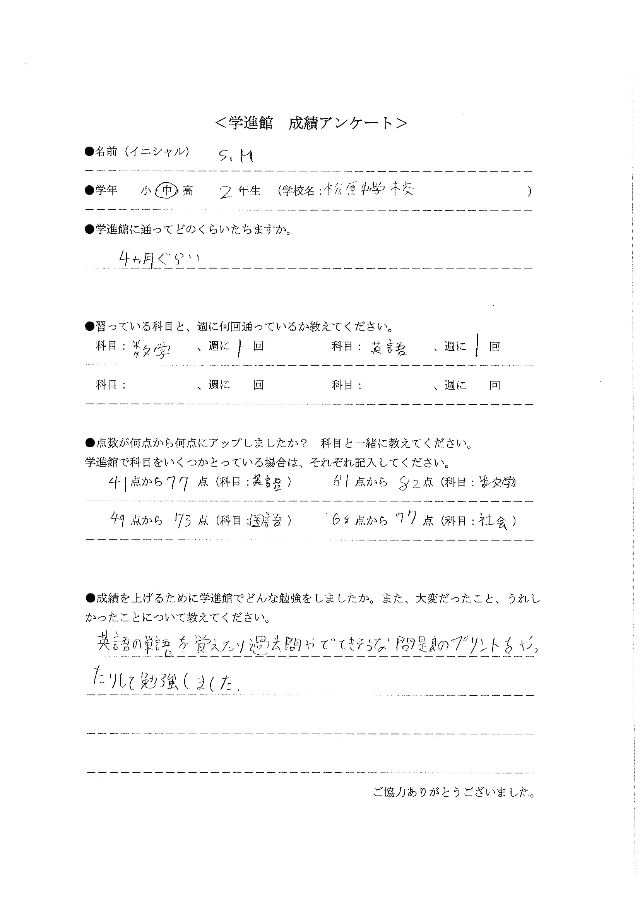 ＜学進館　成績アンケート＞
●名前（イニシャル）　S.M
●学年　小 中 高　2年生　（学校名：松原中学校　）
●学進館に通ってどのくらいたちますか。
4ヵ月ぐらい
●習っている科目と、週に何回通っているか教えてください。
科目：数学　、週に 1 回　科目：英語　、週に 1 回
科目：　、週に　回　科目：　、週に　回
●点数が何点から何点にアップしましたか？　科目と一緒に教えてください。
学進館で科目をいくつかとっている場合は、それぞれ記入してください。
41点から77点（科目：英語）　61点から82点（科目：数学）
49点から73点（科目：国語）　68点から77点（科目：社会）
●成績を上げるために学進館でどんな勉強をしましたか。また、大変だったこと、うれし
かったことについて教えてください。
英語の単語を覚えたり過去問やでてきそうな問題のプリントをやっ
たりして勉強しました.
ご協力ありがとうございました。